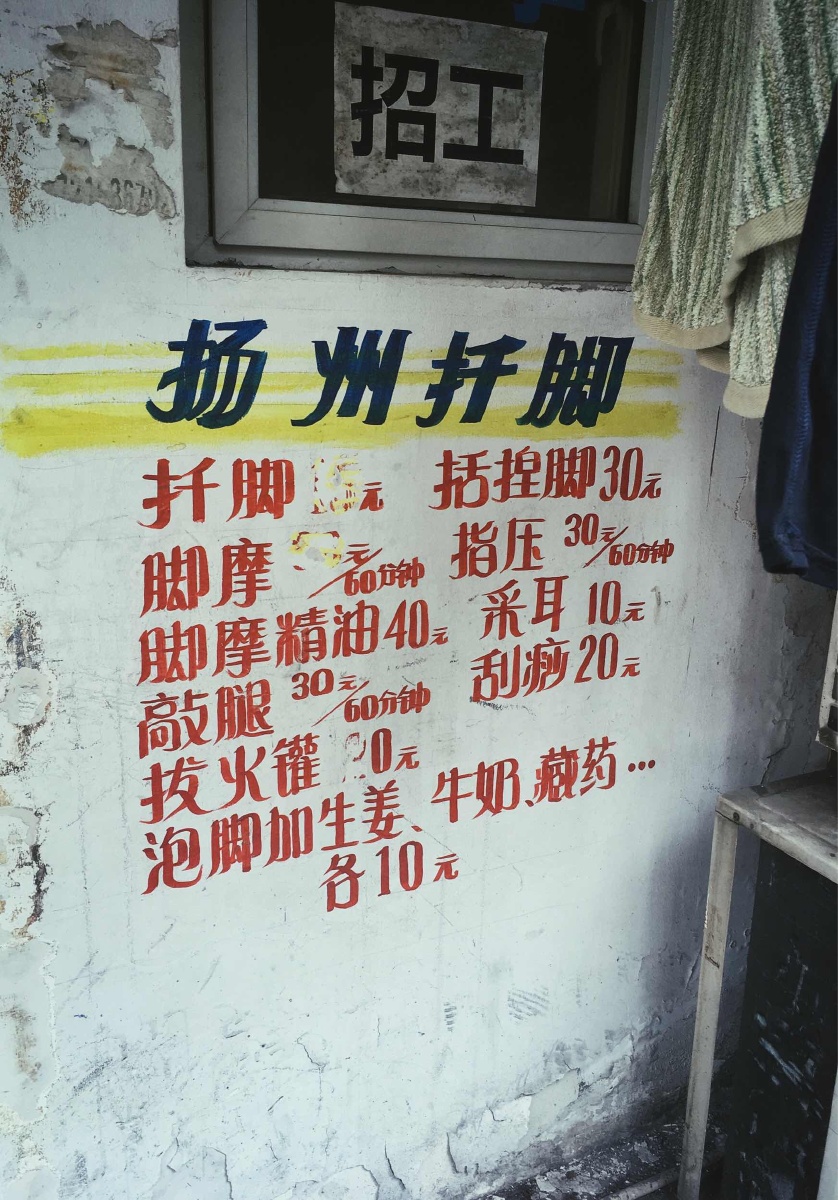 招工
扬州扦脚
扦脚 元 括捏脚30元
脚摩 元/60分钟 指压 30元/60分钟
脚摩精油40元 采耳 10元
敲腿 30元/60分钟 刮痧20元
拔火罐 0元
泡脚加生姜、牛奶、藏药…
各10元